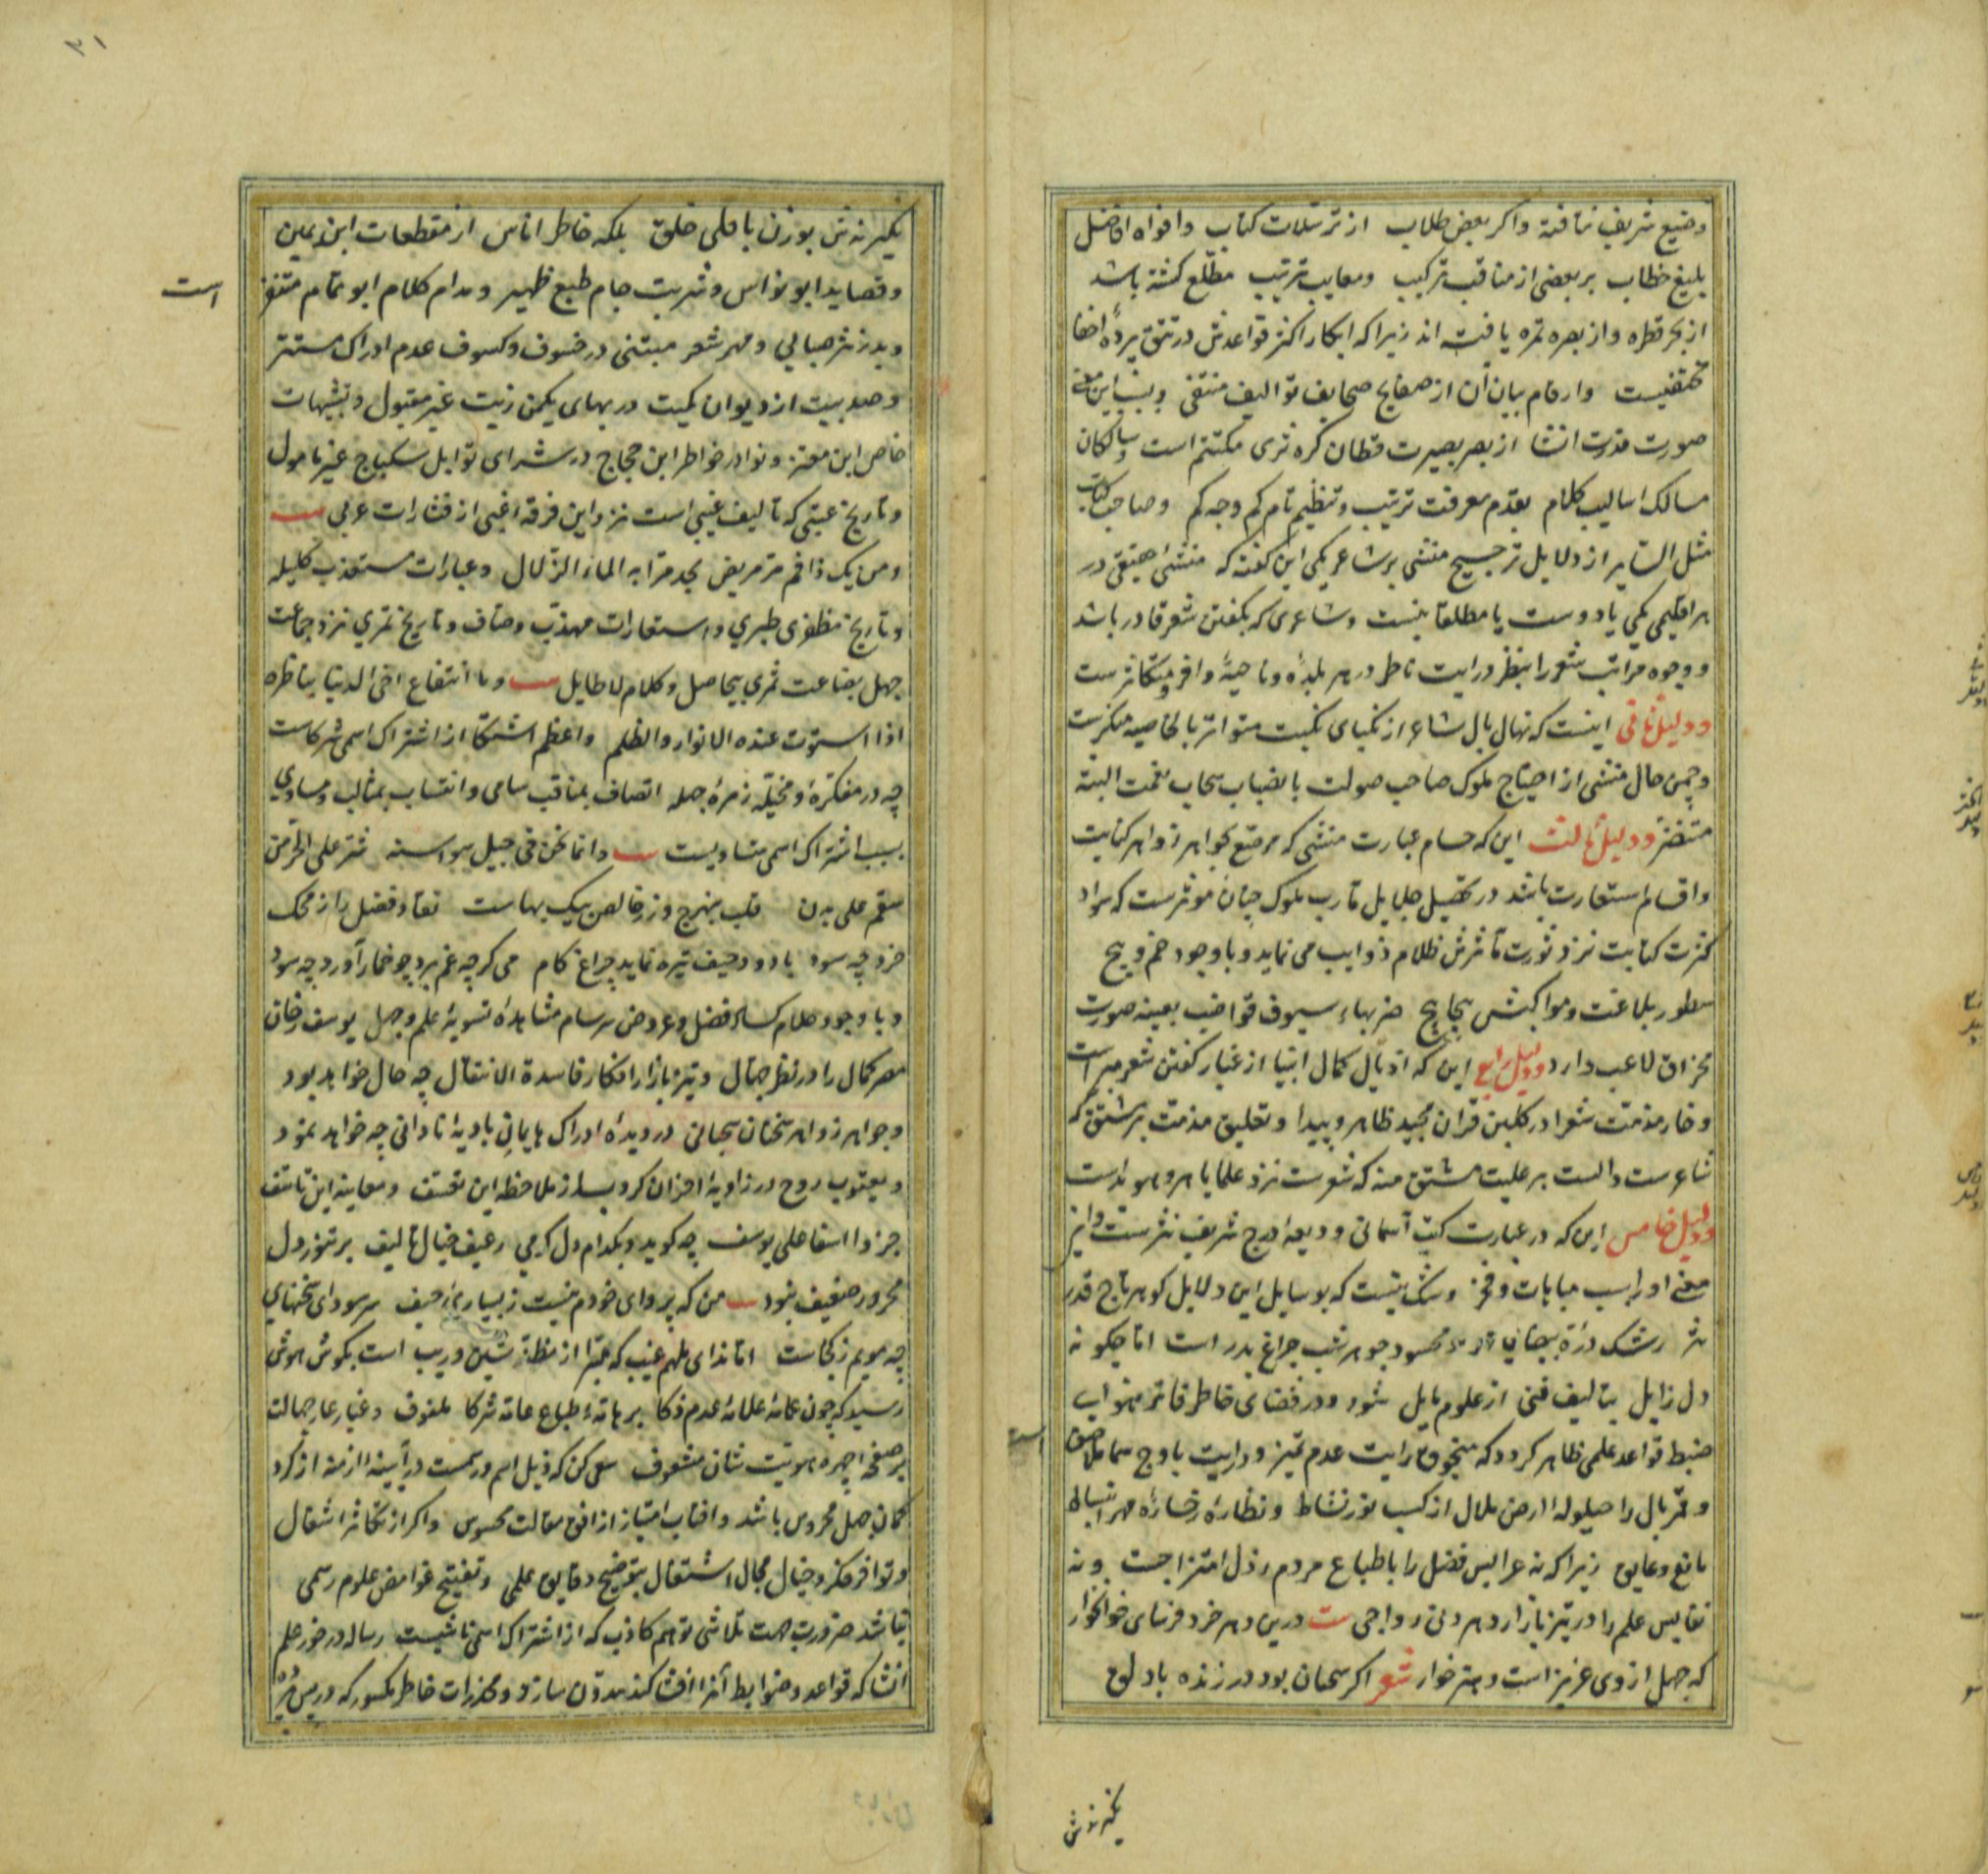 وضیع شریف نیافته واکر بعض طلاب از ترسلات کتاب وافواه افاضل
بلیغ خطاب بر بعضی از مناقب ترکیب ومعایب ترتیب مطلع کشته باشد
از بحر قطره واز بصره تمره یافته اند زیرا که ابکار اکثر قواعدش در تتق پردهٔ اخفا
مختفیست وارقام بیان آن از صفایح صحایف توالیف منتفی وبسبب این معنی
صورت قدرت انشا از بصر بصیرت قطان کره ثری مکتتم است وسالکان
مسالک اسالیب کلام بقدم معرفت ترتیب وتنظیم تام کم وجه کم وصاحب کتاب
مثل السایر از دلایل ترجیح منشی بر شاعر یکی این کفته که منشئ حقیقی در
هر اقلیمی یکی یا دوست یا مطلقا نیست وشاعری که بکفتن شعر قادر باشد
ووجوه مراتب شعر را بنظر درایت ناظر در هر بلده وناحیهٔ وافر ومتکاثرست
ودلیل ثانی اینست که نهال بال شاعر از نکبای نکبت متواتر بالخاصیه منکرست
وچمن حال منشی از احتیاج ملوک صاحب صولت بانضباب سحاب نعمت البته
متنضر ودلیل ثالث این که حسام عبارت منشی که مرصع بجواهر زواهر کنایت
واقسام استعارت باشد در تحصیل جلایل مآرب ملوک چنان موثرست که سواد
کثرت کتابت نزد ثورت تأثرش ظلام ذوایب می نماید وبا وجود خم وپیچ
سطور بلاغت ومواکبتش بجایح ضربهاء سیوف قواضب بعینه صورت
مخراق لاعب دارد ودلیل رابع این که اذیال کمال انبیا از غبار کفتن شعر مبراست
وخار مذمت شعرا در کلبن قرآن مجید ظاهر وپیدا وتعلیق مذمت بر مشتق که
شاعرست دالست بر علیت مشتق منه که شعرست نزد علما باهر وهویداست
ودلیل خامس این که در عبارت کتب آسمانی ودیعه درج شریف نثرست واین
معنی اورا سبب مباهات وفخر وشک نیست که بوسایل این دلایل کوهر تاج قدر
نثر رشک درهٔ بیضا محسود جوهر شب چراغ بدر است اما چکونه
دل زایل بتالیف فنی از علوم مایل شود ودر فضای خاطر فاتر هوای
ضبط قواعد علمی ظاهر کردد که منجوق رایت عدم تمیز ودرایت باوج سما ملاصق است
وقمر بال را حیلوله الارض ملال از کسب نور نشاط ونظارهٔ رخسارهٔ مهر انبساط
مانع وعایق زیرا که نه عرایس فضل را با طباع مردم رذل امتزاجست ونه
نفایس علم را در تیز بازار دهر دنی رواجی بیت درین دهر خرد فرسای خونخوار
که جهل از وی عزیز است وهنر خوار شعر اکر سحبان بود در زنده با دلق
یکیرندش
یکیرندش بوزن باقلی خلق بلکه خاطر اناس از مقطعات ابن یمین
وقصاید ابو نواس وشربت جام طبع ظهیر ومدام کلام ابو تمام متنفر است
وبدر نثر صابی ومهر شعر متنبی در خسوف وکسوف عدم ادراک مستتر
وصد بیت از دیوان کمیت در بهای یکمن زیت غیر مقبول وتشبیهات
خاص ابن معتز ونوادر خواطر ابن حجاج در شرای توابل سکباج غیر مامول
وتاریخ عتبی که تالیف غیبی است نزد این فرقه اغبی از فشارات عربی بیت
ومن یک ذا فم مر مریض یجد مرا به الماء الزلال وعبارات مستعذب کلیله
وتاریخ مظفری طبری واستعارات مهذب وصاف وتاریخ تمری نزد جماعت
جهل بضاعت ثمری بیحاصل وکلام لاطایل بیت وما انتفاع اخی الدنیا بناظره
اذا استوت عنده الانوار والظلم واعظم اشتکا از اشتراک اسمی شرکاست
چه در مفکرهٔ ومخیلهٔ زمرهٔ جهله اتصاف بمناقب سامی وانتساب بمثالب ومساوی
بسبب اشتراک اسمی متساویست بیت وانما نحن فی جیل سواسیه شر علی الحر من
سقم علی بدن قلب بنهرج وزر خالص بیک بهاست نقاد فضل را ز محک
خرد چه سود یا دود حیف تیره نماید چراغ کام می کرچه غم برد چو خمار آورد چه سود
وبا وجود ظلام کساد فضل وعروض سرسام مشاهدهٔ تسویهٔ علم وجهل یوسف رخان
مصر کمال را در نظر جهال وتیز بازار افکار فاسدة الانتقال چه حال خواهد بود
وجواهر زواهر سخنان سحبانی در دیدهٔ ادراک هایمان بادیهٔ نادانی چه خواهد نمود
ویعقوب روح در زاویهٔ احزان کروب از ملاحظه این تعسف ومعاینه این تاسف
جز وا اسفا علی یوسف چه کوید وبکدام دل کرمی رغیف خیال تالیف بر تنور دل
محرور ضعیف شود بیت من که پروای خودم نیست ز بسیاری حیف سر سودای سخنهای
چه مویم ز کجاست اما ندای ملهم غیب که مبرا از مظنهٔ شین وریب است بکوش هوش
رسید که چون عمامهٔ علامهٔ عدم ذکا بر هامهٔ طباع عامه شرکا ملفوف وغبار عار جهالت
بر صفحه چهره هویت شان مشعوف سعی کن که ذیل اسم ورسمت در آیینه ازمنه از کرد
کمان جهل محروس باشد وافتاب امتیاز از افق مقالت محسوس واکر از تکاثر اشغال
وتوافر فکر وخیال مجال اشتغال بتوضیح دقایق علمی وتفتیح غوامض علوم رسمی
نباشد ضرورت جهت تلاشی توهم کاذب که از اشتراک اسمی ناشیست رساله در خور علم
انشا که قواعد وضوابط آنرا افشا کند مدون ساز ومخدرات خاطر مکسور که در پس پردهٔ